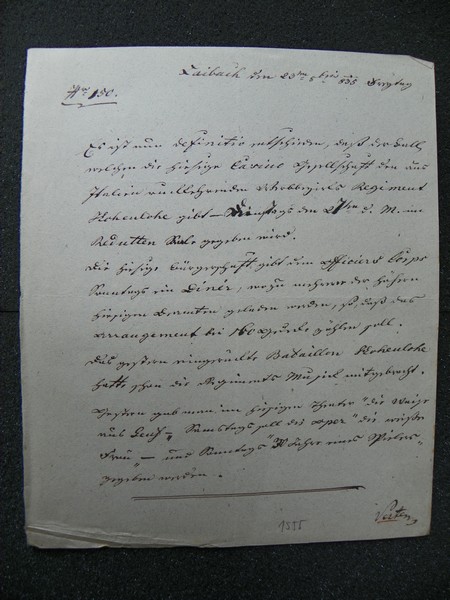 Laibach den 23ten 8bris 835 Freytag
No 150.
Es ist nun definitiv entschieden, daß der Ball,
welchen die hiesige Casino Gesellschaft dem aus
Italien rückkehrenden Regiment
Hohenlohe gibt – Dienstags den 27ten d. M. im
Redutten Sale gegeben wird.
Die hiesige Bürgerschaft gibt dem Officiers Corps
Sonntags ein Dinér, wozu mehrere der hohen
hiesigen Beamten geladen werden, so daß das
Arrangement bei 160 Gedecke zählen soll.
Das gestern eingerückte Bataillon Hohenlohe
hatte schon die Regiments Musick mitgebracht.
Gestern gab man im hiesigen Theater "die Waise
aus Genf", Samstags soll die Oper "die weiße
Frau" – und Sonntags "30 Jahre eines Spielers"
gegeben werden.
1835